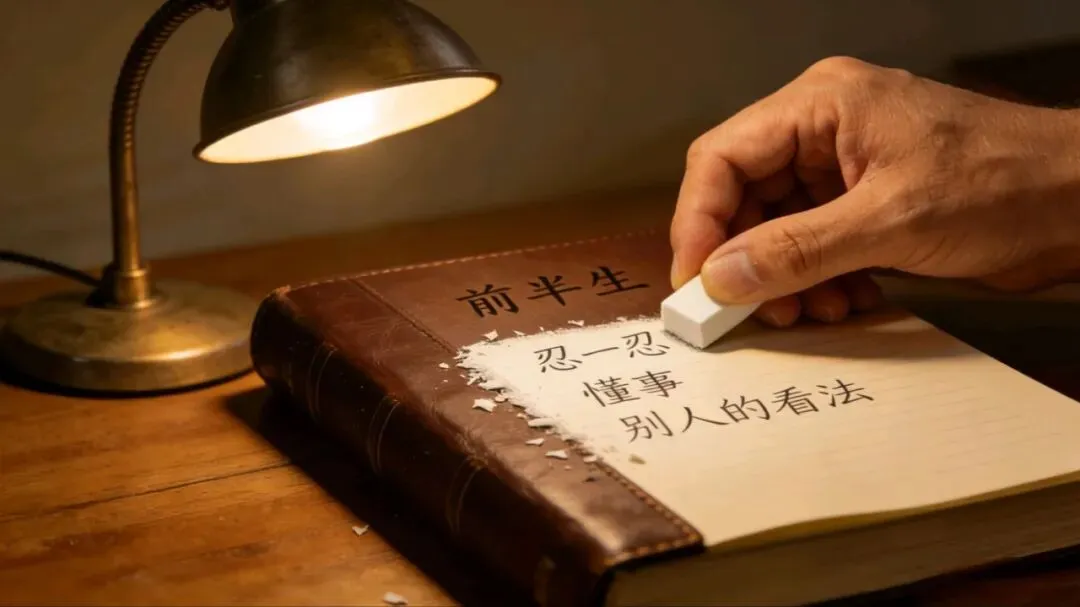 前半生
忍一忍
懂事
别人的看法